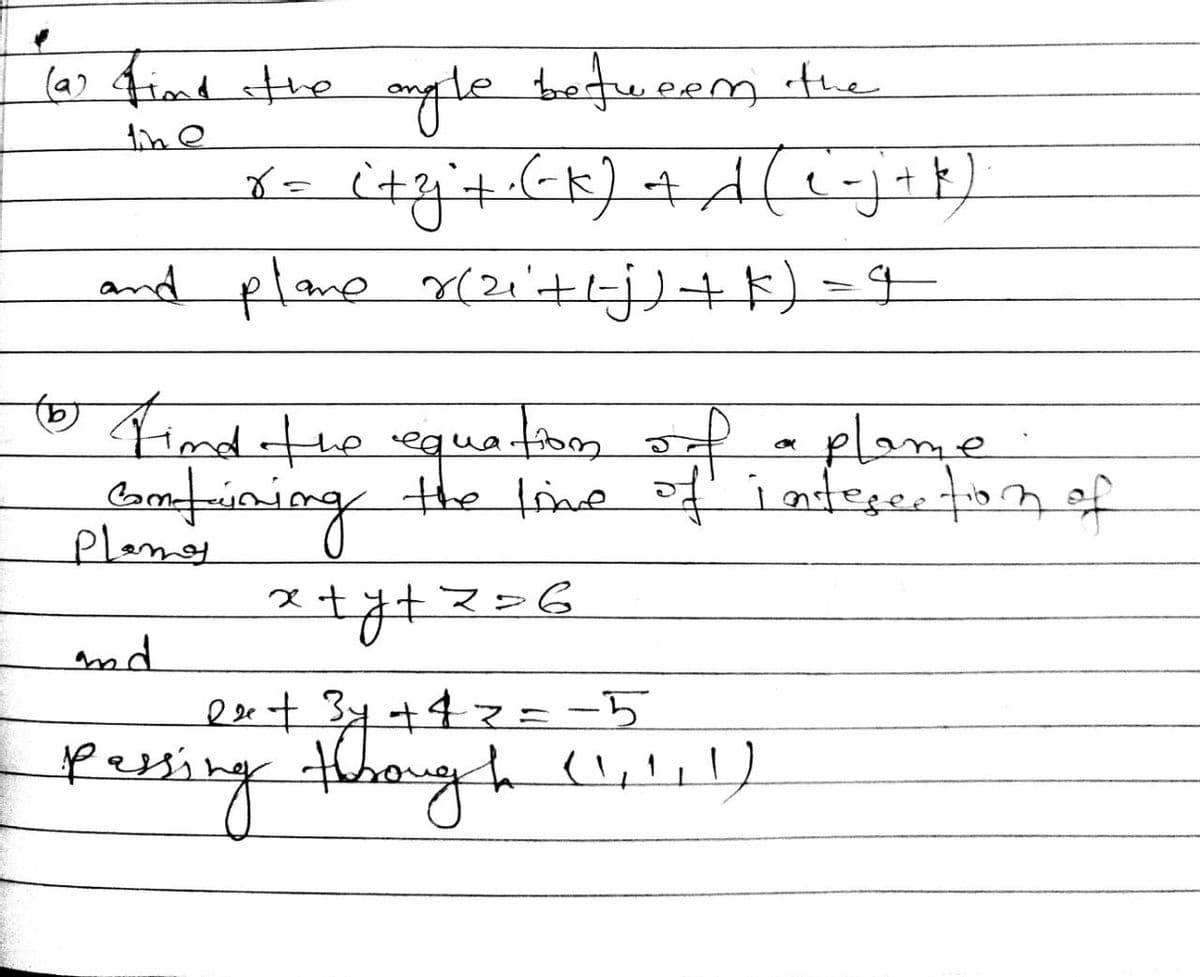 (a) find the angle between the
line
r = i+2j+(-k) + λ(i-j+k)
and plane r(2i+(-j)+k) = 4
(b) Find the equation of a plane
Containing the line of intesection of
Planes
x+y+z=6
and
2x+3y+4z=-5
passing through (1,1,1)